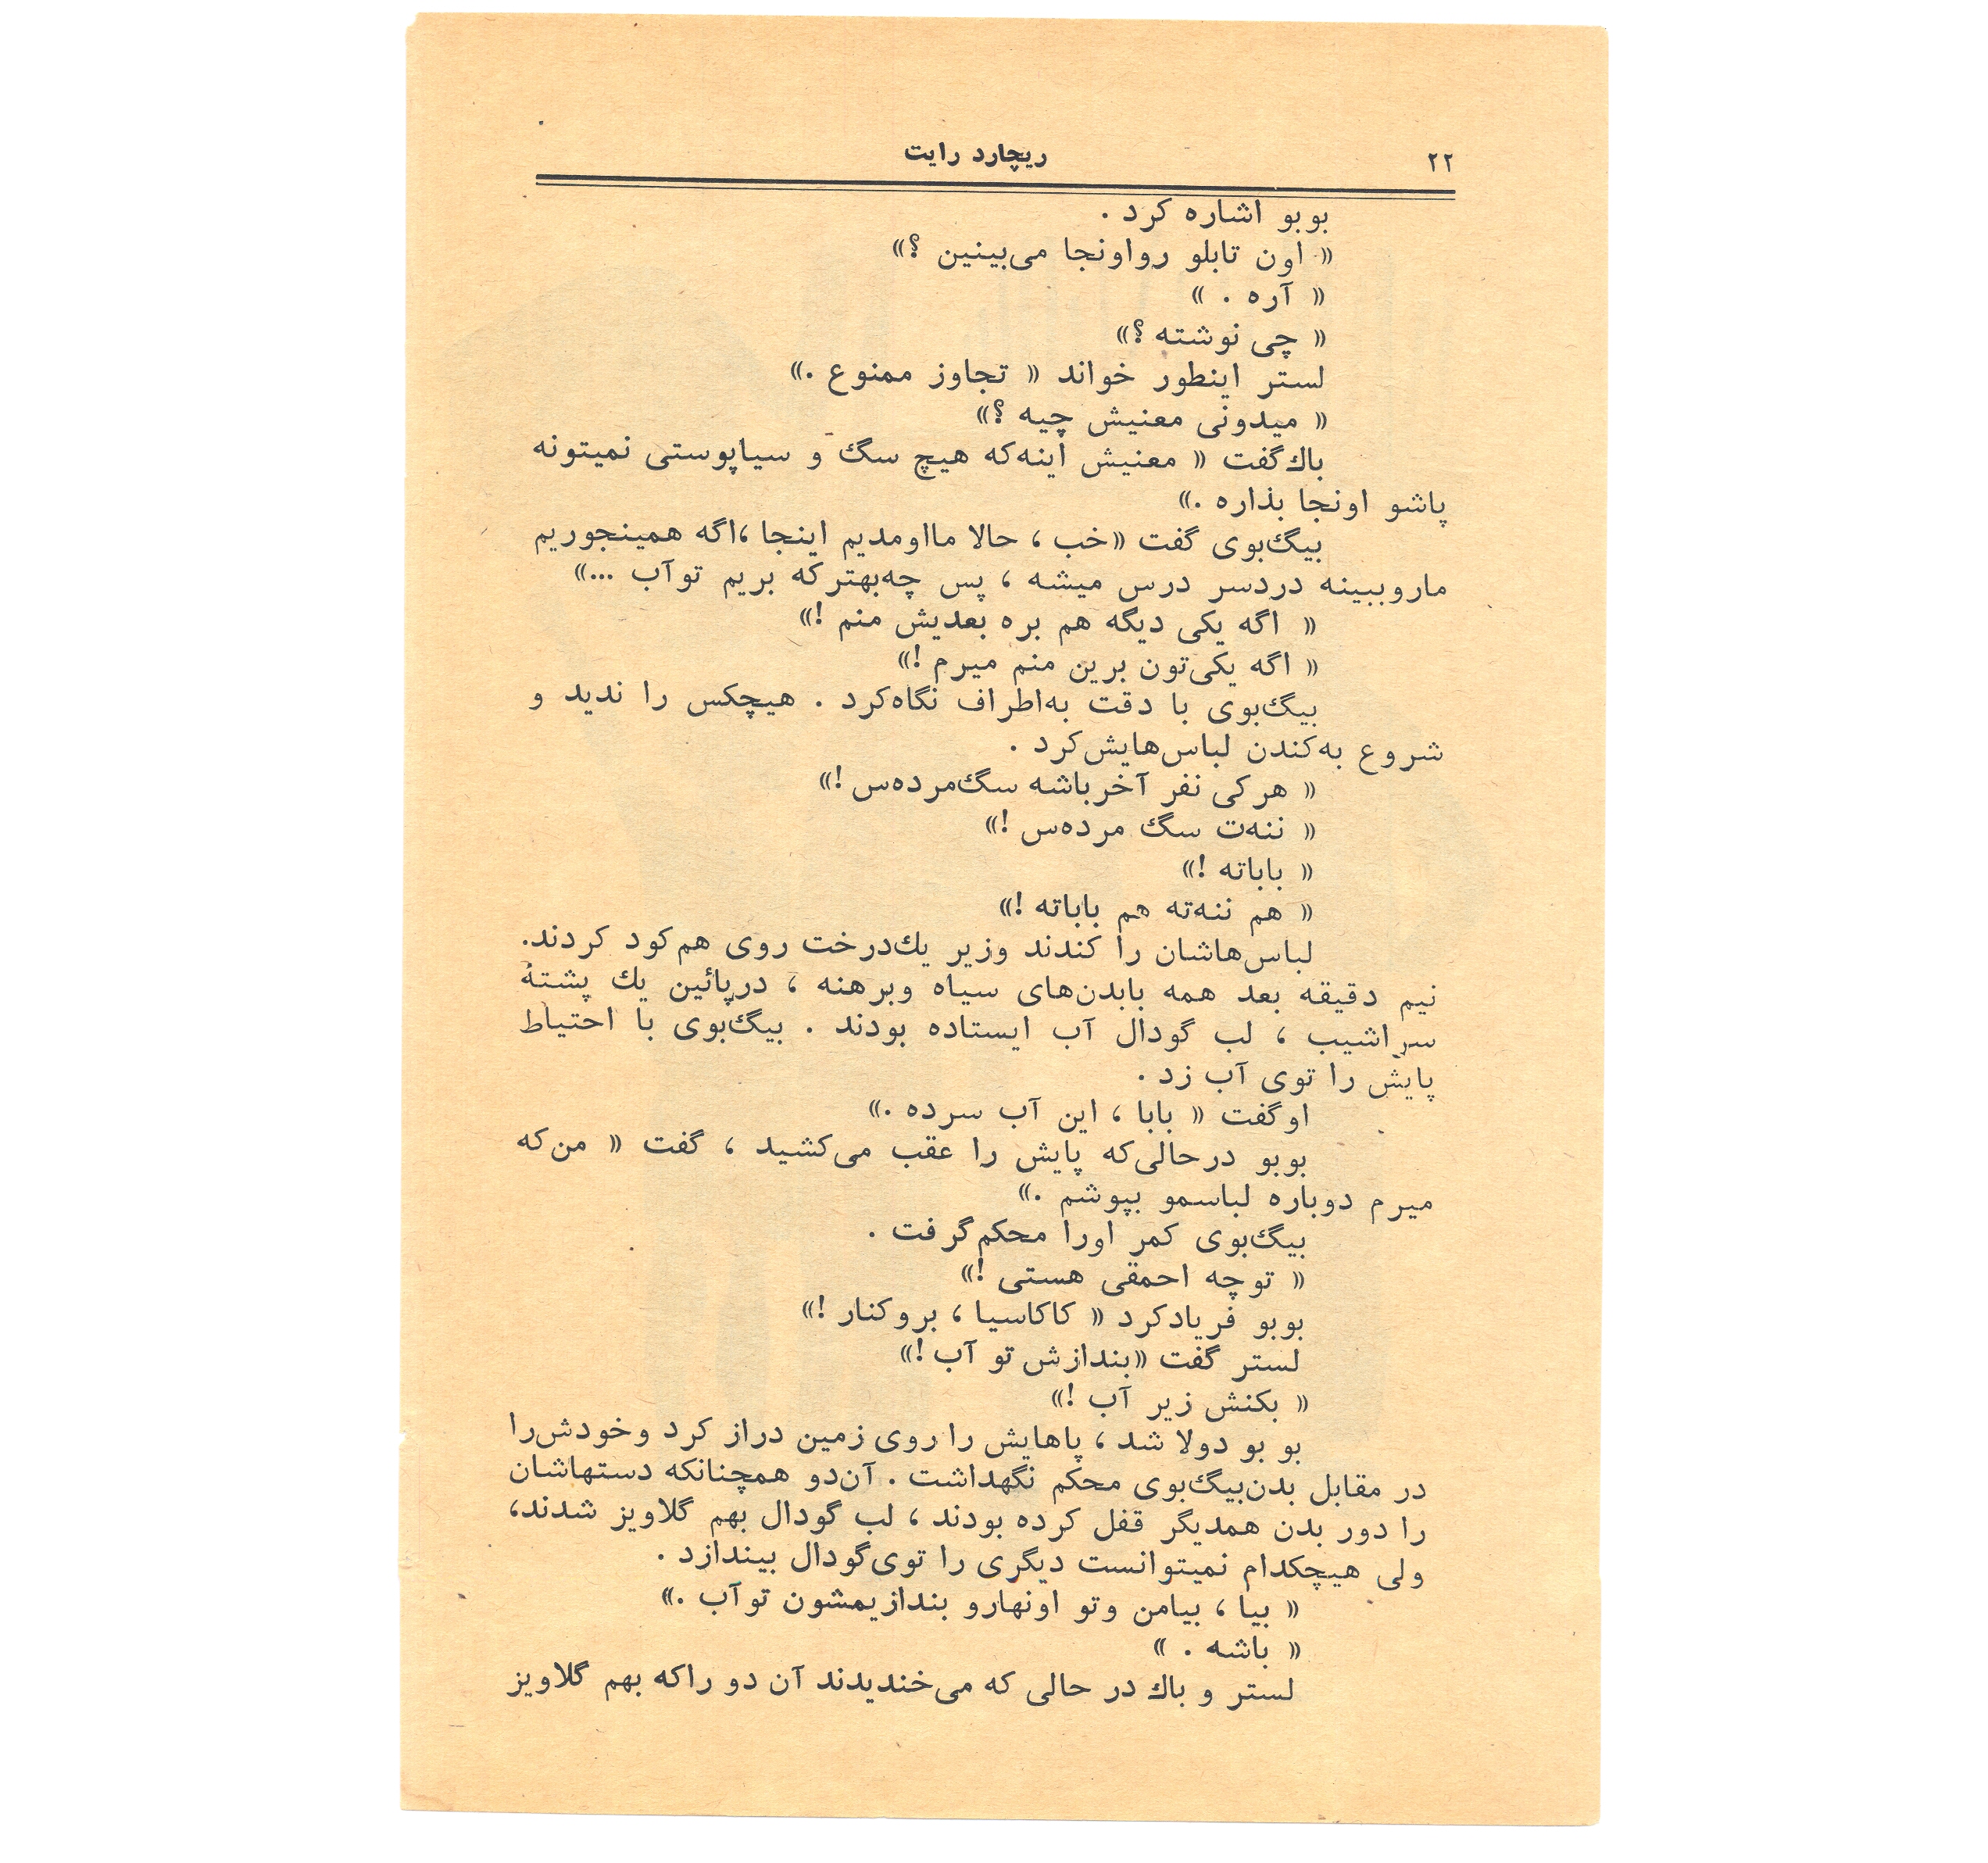 ۲۲
ریچارد رایت
بوبو اشاره کرد .
« اون تابلو رواونجا می‌بینین ؟»
« آره . »
« چی نوشته ؟»
لستر اینطور خواند « تجاوز ممنوع .»
« میدونی معنیش چیه ؟»
باك گفت « معنیش اینه‌که هیچ سگ و سیاپوستی نمیتونه
پاشو اونجا بذاره .»
بیگ‌بوی گفت «خب ، حالا مااومدیم اینجا ،اگه همینجوریم
ماروببینه دردسر درس میشه ، پس چه‌بهترکه بریم توآب ...»
« اگه یکی دیگه هم بره بعدیش منم !»
« اگه یکی‌تون برین منم میرم !»
بیگ‌بوی با دقت به‌اطراف نگاه‌کرد . هیچکس را ندید و
شروع به‌کندن لباس‌هایش‌کرد .
« هرکی نفر آخرباشه سگ‌مرده‌س !»
« ننه‌ت سگ مرده‌س !»
« باباته !»
« هم ننه‌ته هم باباته !»
لباس‌هاشان را کندند وزیر یك‌درخت روی هم‌کود کردند.
نیم دقیقه بعد همه بابدن‌های سیاه وبرهنه ، درپائین یك پشتهٔ
سراشیب ، لب گودال آب ایستاده بودند . بیگ‌بوی با احتیاط
پایش را توی آب زد .
اوگفت « بابا ، این آب سرده .»
بوبو درحالی‌که پایش را عقب می‌کشید ، گفت « من‌که
میرم دوباره لباسمو بپوشم .»
بیگ‌بوی کمر اورا محکم‌گرفت .
« توچه احمقی هستی !»
بوبو فریادکرد « کاکاسیا ، بروکنار !»
لستر گفت «بندازش تو آب !»
« بکنش زیر آب !»
بو بو دولا شد ، پاهایش را روی زمین دراز کرد وخودش‌را
در مقابل بدن‌بیگ‌بوی محکم نگهداشت . آن‌دو همچنانکه دستهاشان
را دور بدن همدیگر قفل کرده بودند ، لب گودال بهم گلاویز شدند،
ولی هیچکدام نمیتوانست دیگری را توی‌گودال بیندازد .
« بیا ، بیامن وتو اونهارو بندازیمشون توآب .»
« باشه . »
لستر و باك در حالی که می‌خندیدند آن دو راکه بهم گلاویز